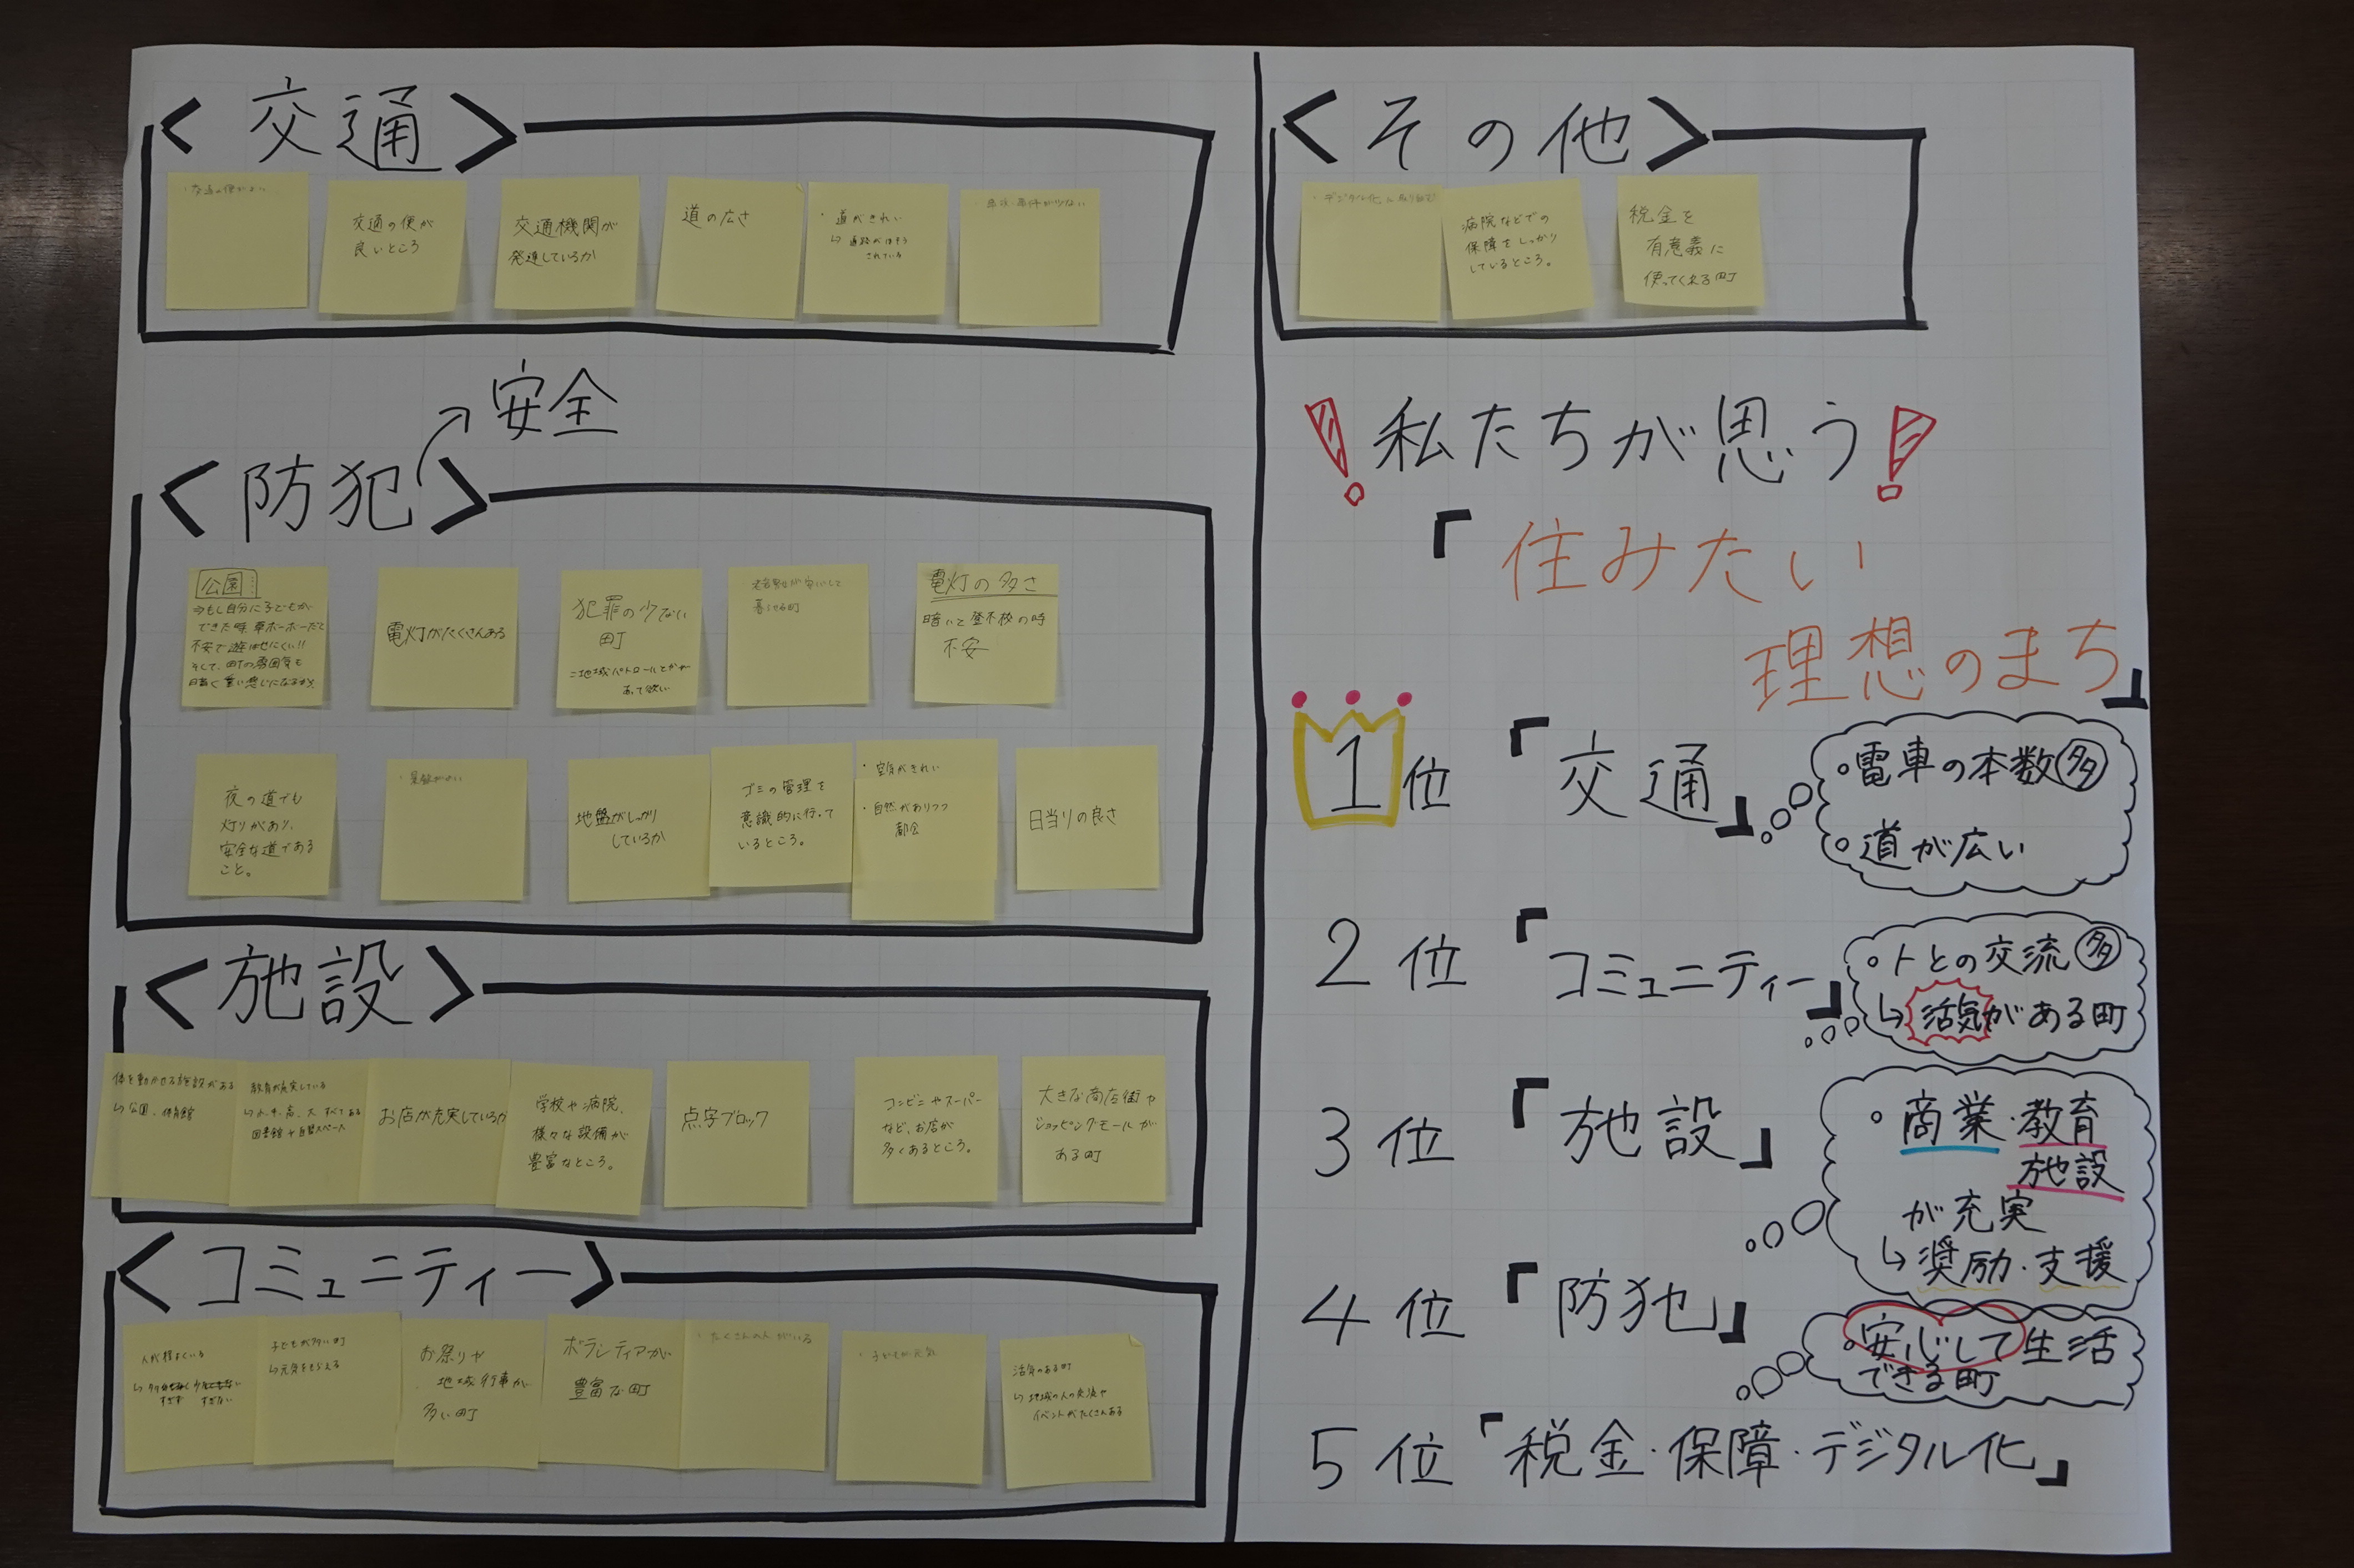 <交通>
・交通の便がよい
交通の便が
良いところ
交通機関が
発達しているか
道の広さ
・道がきれい
↳道路がほそう
されている
・事故・事件が少ない
安全
<防犯>
公園…
今もし自分に子どもが
できた時、草ボーボーだと
不安で遊ばせにくい!!
そして、町の雰囲気も
暗く重い感じになるから。
電灯がたくさんある
犯罪の少ない
町
地域パトロールとかが
あって欲しい
老若男女が安心して
暮らせる町
電灯の多さ
暗いと登下校の時
不安
夜の道でも
灯りがあり、
安全な道である
こと。
・景観がよい
地盤がしっかり
しているか
ゴミの管理を
意識的に行って
いるところ。
・空気がきれい
・自然がありつつ
都会
日当りの良さ
<施設>
体を動かせる施設がある
↳公園、体育館
教育が充実している
↳小、中、高、大 すべてある
図書館や自習スペース
お店が充実しているか
学校や病院、
様々な設備が
豊富なところ。
点字ブロック
コンビニやスーパー
など、お店が
多くあるところ。
大きな商店街や
ショッピングモールが
ある町
<コミュニティー>
人が程よくいる
すぎず すぎない
子どもが多い町
↳元気をもらえる
お祭りや
地域行事が
多い町
ボランティアが
豊富な町
・たくさんの人がいる
・子どもが元気
活気のある町
↳地域の人の交流や
イベントがたくさんある
<その他>
・デジタル化に取り組む
病院などでの
保障をしっかり
しているところ。
税金を
有意義に
使ってくれる町
!私たちが思う!
「住みたい
理想のまち」
1位「交通」
○電車の本数多
○道が広い
2位「コミュニティー」
○人との交流多
↳活気がある町
3位「施設」
○商業・教育
施設
が充実
↳奨励・支援
4位「防犯」
○安心して生活
できる町
5位「税金・保障・デジタル化」